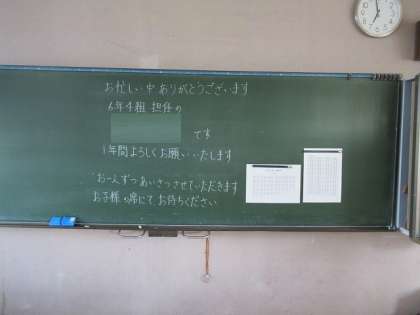 お忙しい中ありがとうございます
6年4組 担任の
です
1年間よろしくお願いいたします
お一人ずつあいさつさせていただきます
お子様の席にてお待ちください